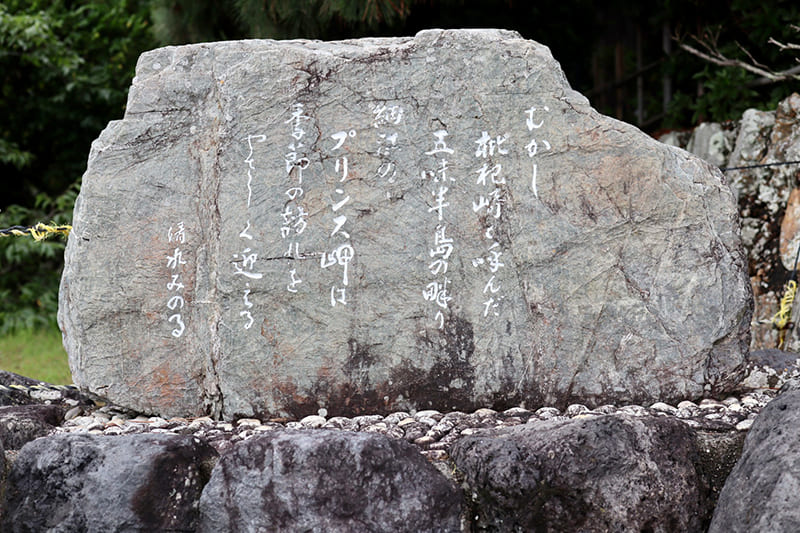 むかし
枇杷崎と呼んだ
五味半島の畔り
細江の
プリンス岬は
季節の訪れを
やさしく迎える
清水みのる